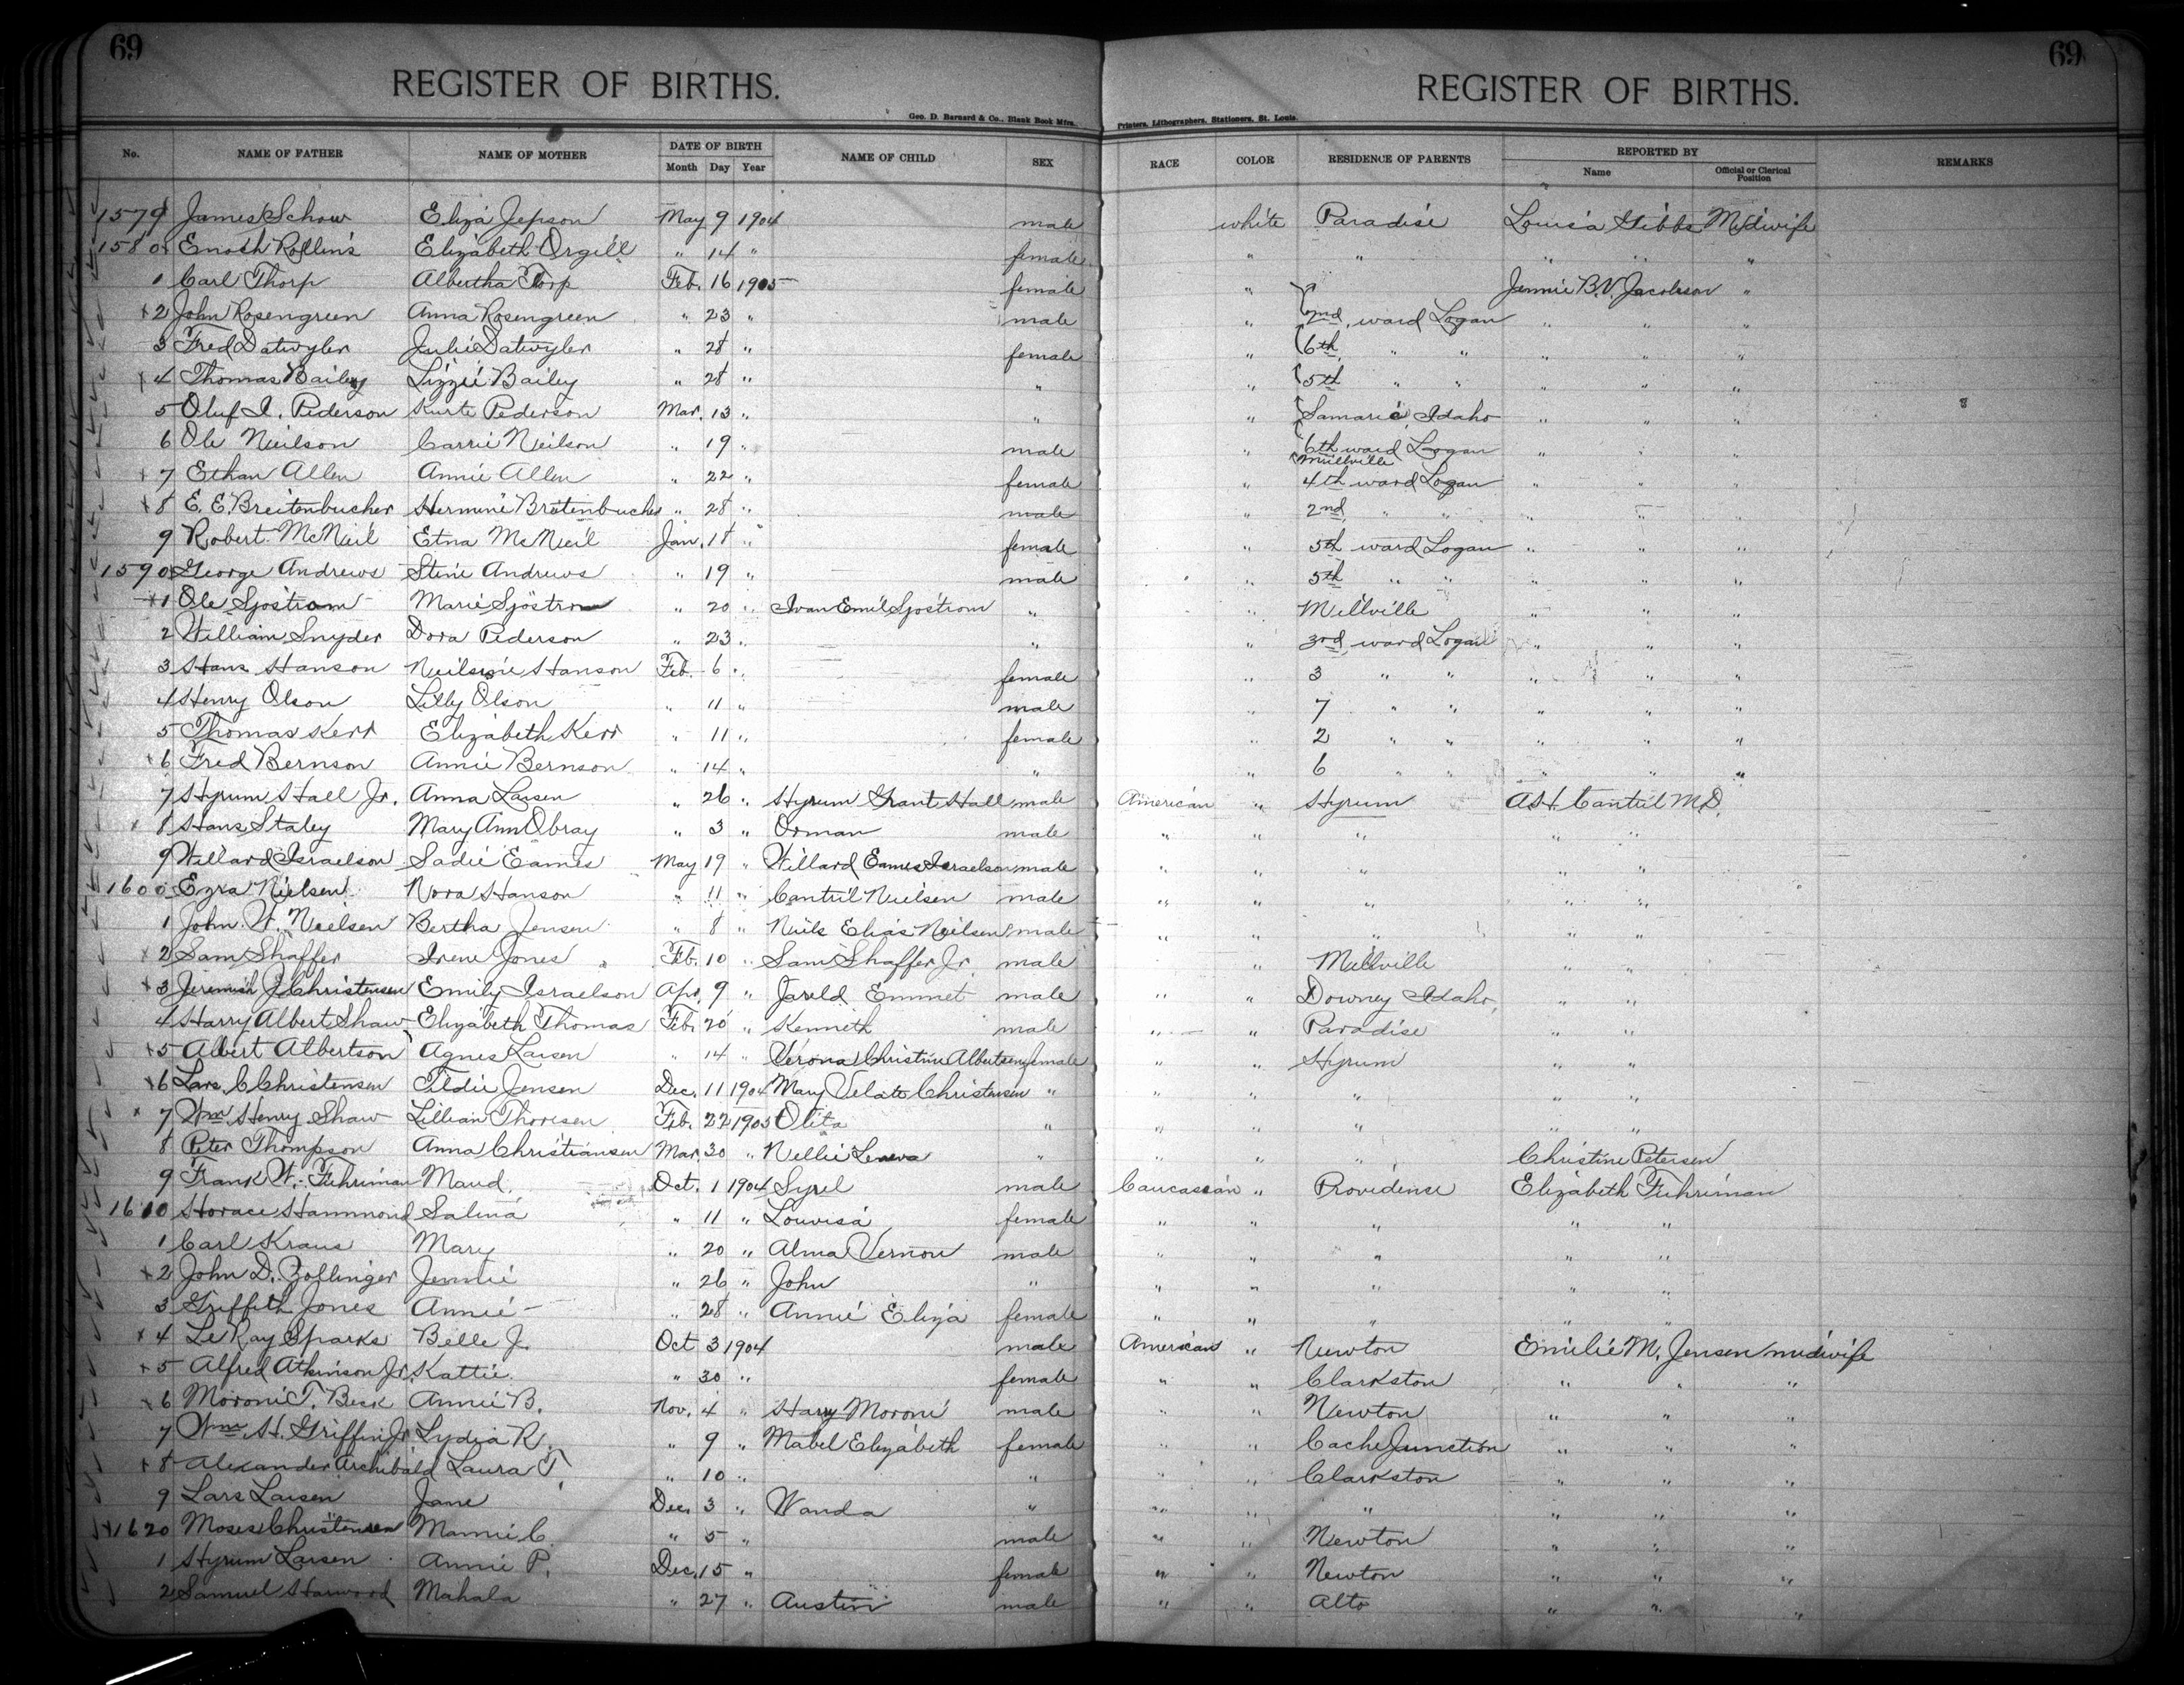 69
69
REGISTER OF BIRTHS.
REGISTER OF BIRTHS.
Geo. D. Barnard & Co., Blank Book Mfrs.
Printers, Lithographers, Stationers, St. Louis.
No. NAME OF FATHER NAME OF MOTHER DATE OF BIRTH Month Day Year NAME OF CHILD SEX RACE COLOR RESIDENCE OF PARENTS REPORTED BY Name Official or Clerical Position REMARKS
1579 James Schow Eliza Jepson May 9 1904 male white Paradise Louisa Gibbs Midwife
1580 Enoch Rollins Elizabeth Orgill " 14 " female " " " " "
1 Carl Thorp Albertha Thorp Feb. 16 1905 female " Jennie B.V. Jacobson "
2 John Rosengreen Anna Rosengreen " 23 " male " 2nd ward Logan " " "
3 Fred Datwyler Julie Datwyler " 28 " female " 6th " " " " "
4 Thomas Bailey Lizzie Bailey " 28 " " " 5th " " " " "
5 Oluf I. Pederson Kurte Pederson Mar. 13 " " " Samaria, Idaho " " "
6 Ole Neilson Carrie Neilson " 19 " male " 6th ward Logan " " "
Millville
7 Ethan Allen Annie Allen " 22 " female " 4th ward Logan " " "
8 E. E. Breitenbucher Hermine Bretenbucher " 28 " male " 2nd " " " " "
9 Robert McNeil Etna McNeil Jan. 18 " female " 5th ward Logan " " "
1590 George Andrews Stine Andrews " 19 " male " 5th " " " " "
1 Ole Sjostrom Marie Sjöstrom " 20 " Ivan Emil Sjostrom " " Millville " " "
2 William Snyder Dora Pederson " 23 " " " 3rd ward Logan " " "
3 Hans Hanson Neilsine Hanson Feb. 6 " female " 3 " " " " "
4 Henry Olson Lilly Olson " 11 " male " 7 " " " " "
5 Thomas Kerr Elizabeth Kerr " 11 " female " 2 " " " " "
6 Fred Bernson Annie Bernson " 14 " " " 6 " " " " "
7 Hyrum Hall Jr. Anna Larsen " 26 " Hyrum Grant Hall male American " Hyrum A H Cantril M.D.
8 Hans Staley Mary Ann Obray " 3 " Orman male " " " " "
9 Willard Israelson Sadie Eames May 19 " Willard Eames Israelson male " " " " "
1600 Ezra Nielsen Nora Hanson " 11 " Cantril Nielsen male " " " " "
1 John W. Nielsen Bertha Jensen " 8 " Neils Elias Neilsen male " " " " "
2 Sam Shaffer Irene Jones " Feb. 10 " Sam Shaffer Jr male " Millville " "
3 Jeremiah J. Christensen Emily Israelson Apr. 9 " Jareld Emmet male " " Downey Idaho, " "
4 Harry Albert Shaw Elizabeth Thomas Feb. 20 " Kenneth male " " Paradise " "
5 Albert Albertson Agnes Larsen " 14 " Verona Christine Albertsen female " " Hyrum " "
6 Lars C Christensen Tildie Jensen Dec. 11 1904 Mary Velate Christensen " " " " " "
7 Wm. Henry Shaw Lillian Thoresen Feb. 22 1905 Olita " " " " " "
8 Peter Thompson Anna Christiansen Mar. 30 " Nellie Leneva " " " " Christine Petersen
9 Frank W. Fuhriman Maud. Oct. 1 1904 Syrel male Caucasian " Providense Elizabeth Fuhriman
1610 Horace Hammond Salina " 11 " Louvisa female " " " " "
1 Carl Kraus Mary " 20 " Alma Vernon male " " " " "
2 John D. Zollinger Jennie " 26 " John " " " " " "
3 Griffith Jones Annie " 28 " Annie Eliza female " " " " "
4 Le Ray Sparks Belle J. Oct 3 1904 male American " Newton Emilie M. Jensen midwife
5 Alfred Atkinson Jr. Kattie " 30 " female " " Clarkston " " "
6 Moroni T. Beck Annie B. Nov. 4 " Harry Moroni male " " Newton " " "
7 Wm H. Griffin Jr. Lydia R. " 9 " Mabel Elizabeth female " " Cache Junction " " "
8 Alexander Archibald Laura T. " 10 " " " " Clarkston " " "
9 Lars Larsen Jane Dec. 3 " Wanda " " " " " " "
1620 Moses Christensen Mamie C. " 5 " male " " Newton " " "
1 Hyrum Larsen Annie P. Dec. 15 " female " " Newton " " "
2 Samuel Harwood Mahala " 27 " Austin male " " Alto " " "